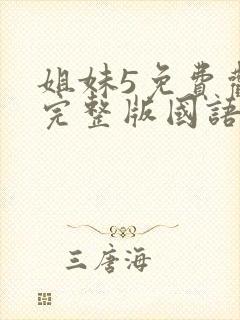 姐妹5免費
完整版國語
三唐海